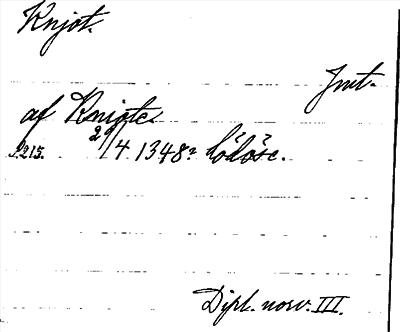 Knjot.
Jnt.
af Kniotc.
s. 215. 29/4 1348? Lödöse.
Dipl. norv. III.